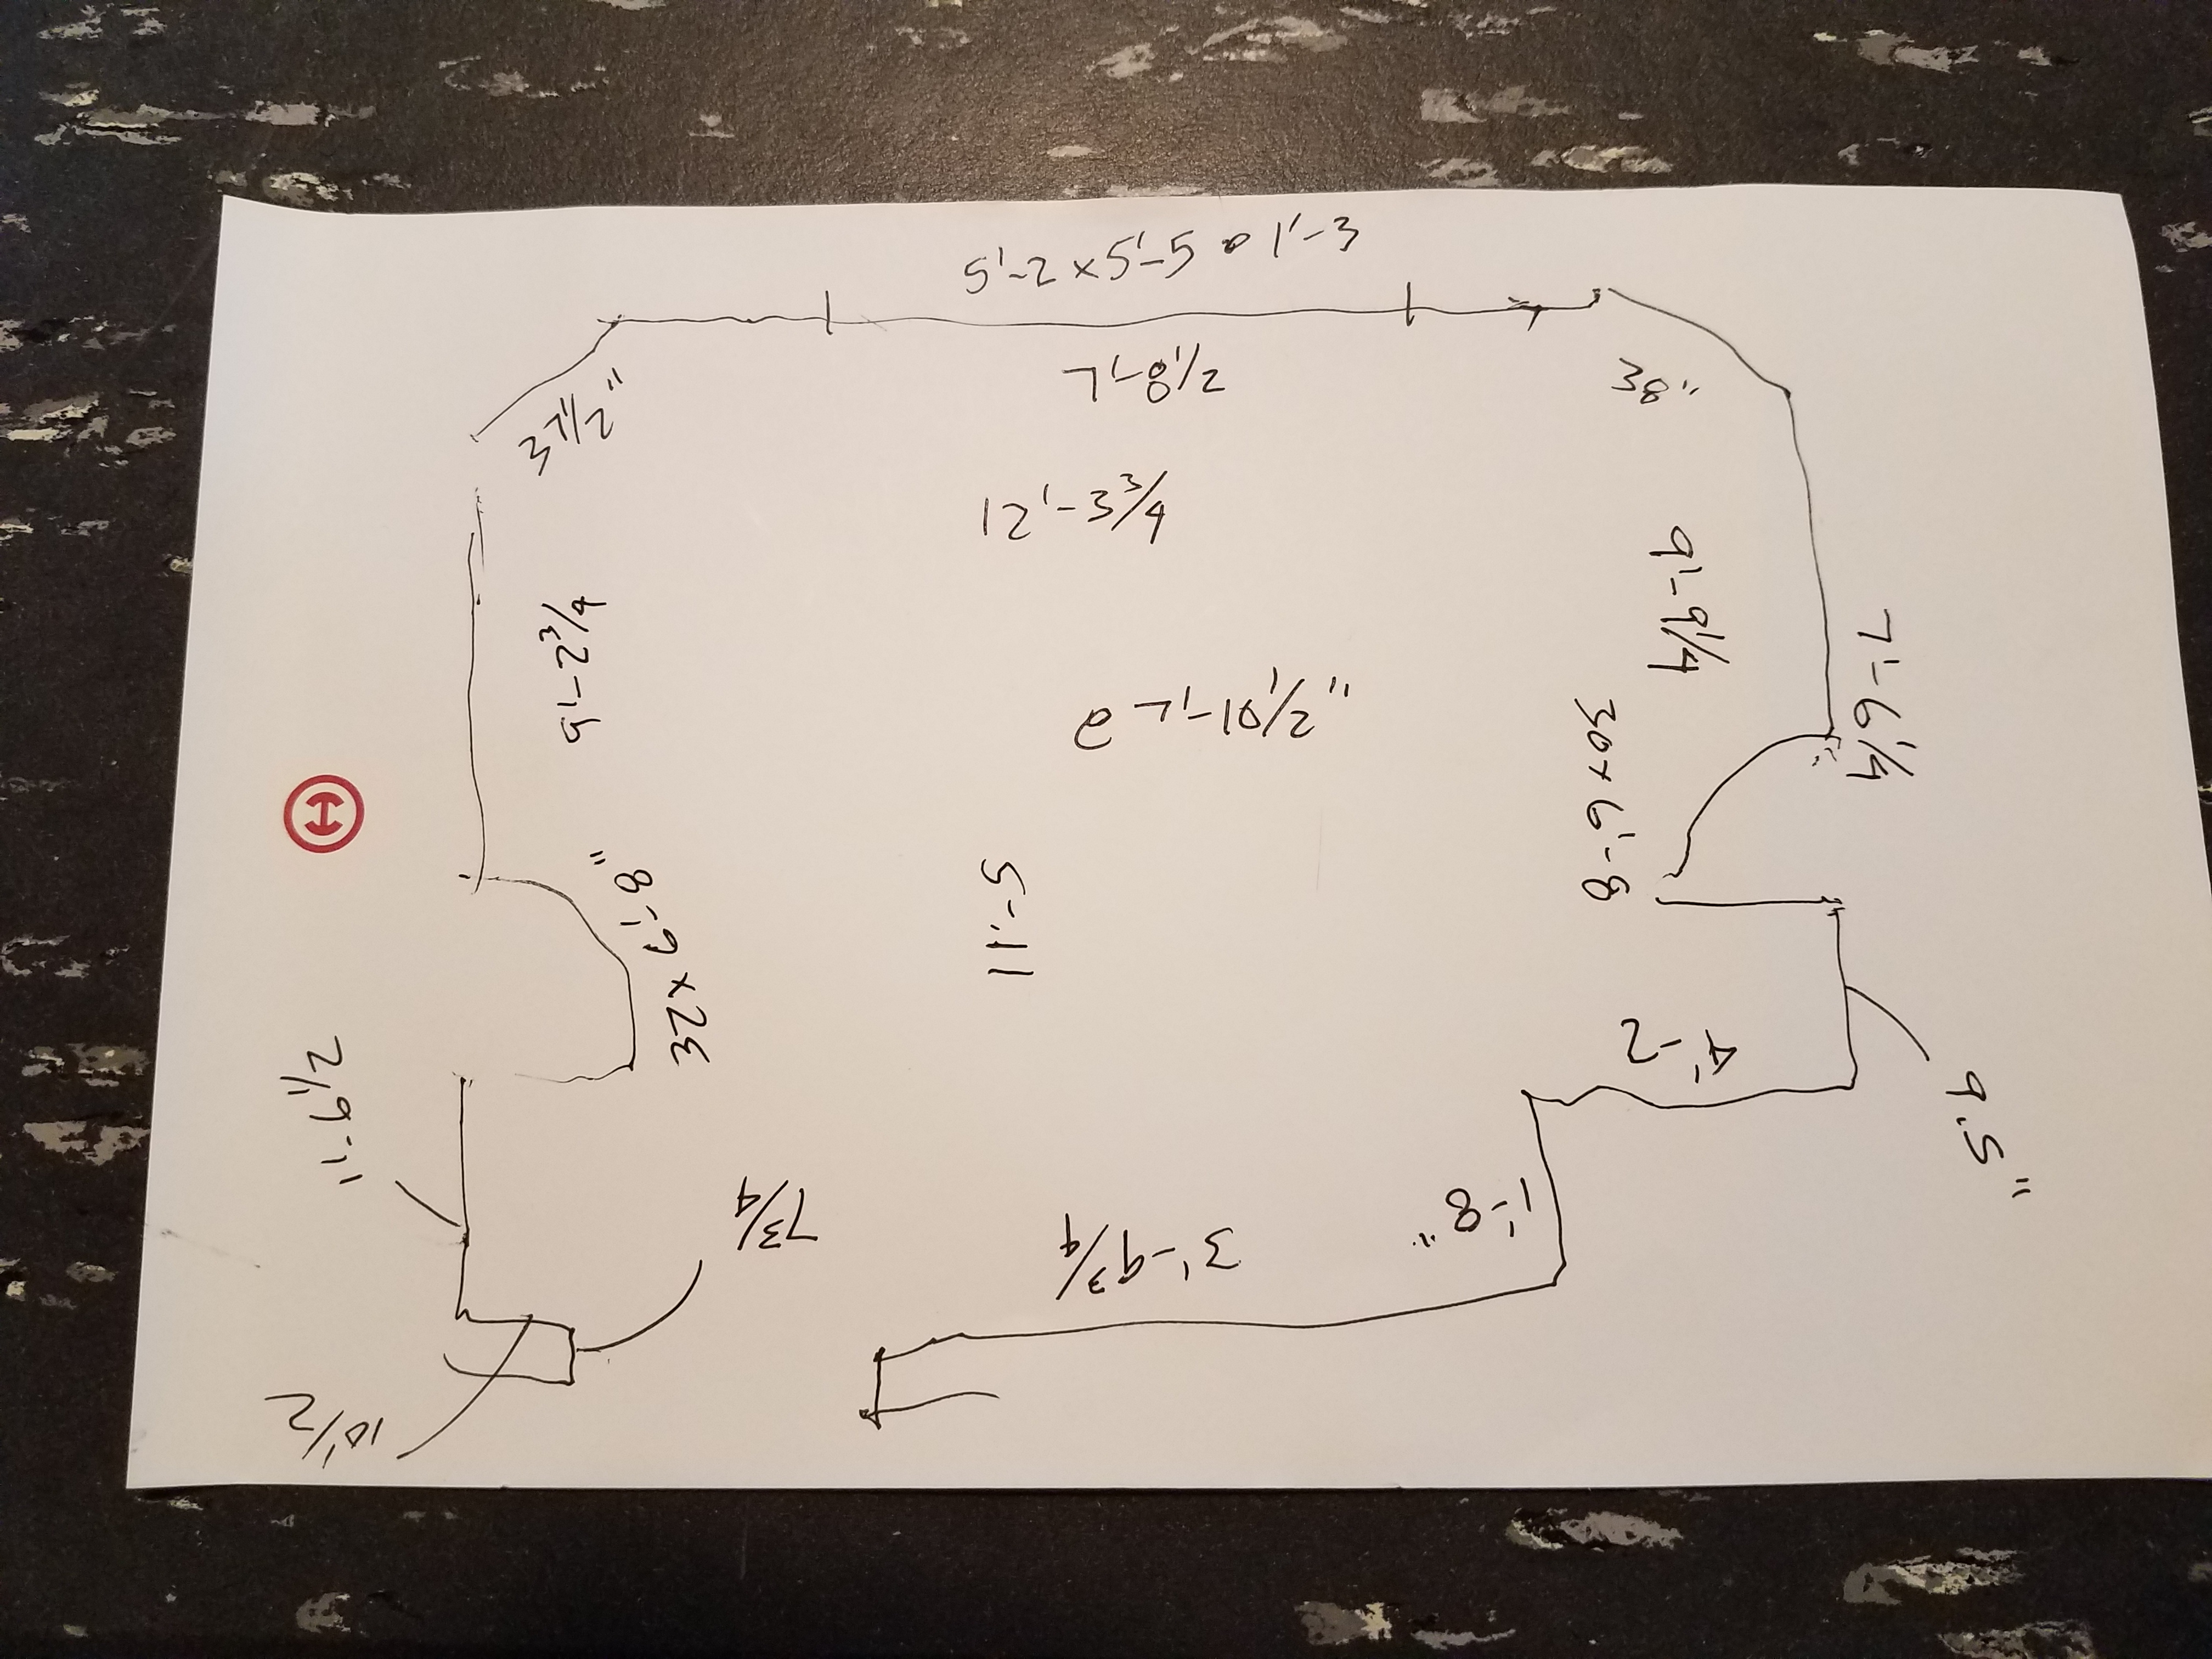 5'-2 x 5'-5 @ 1'-3
7'-8 1/2
38"
37 1/2"
12'-3 3/4
9'-9 1/4
7'-6 1/4
@ 7'-10 1/2"
30 x 6'-8
32 x 6'-8"
11'-5
4'-2
9.5"
1'-8"
3'-9 3/4
7 3/4
10 1/2